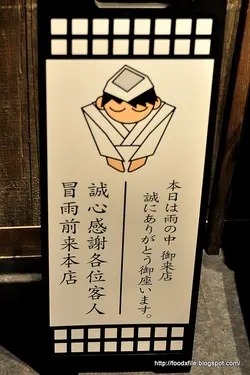 本日は雨の中 御来店
誠にありがとう御座います。
誠心感謝各位客人
冒雨前来本店
http://foodxfile.blogspot.com/